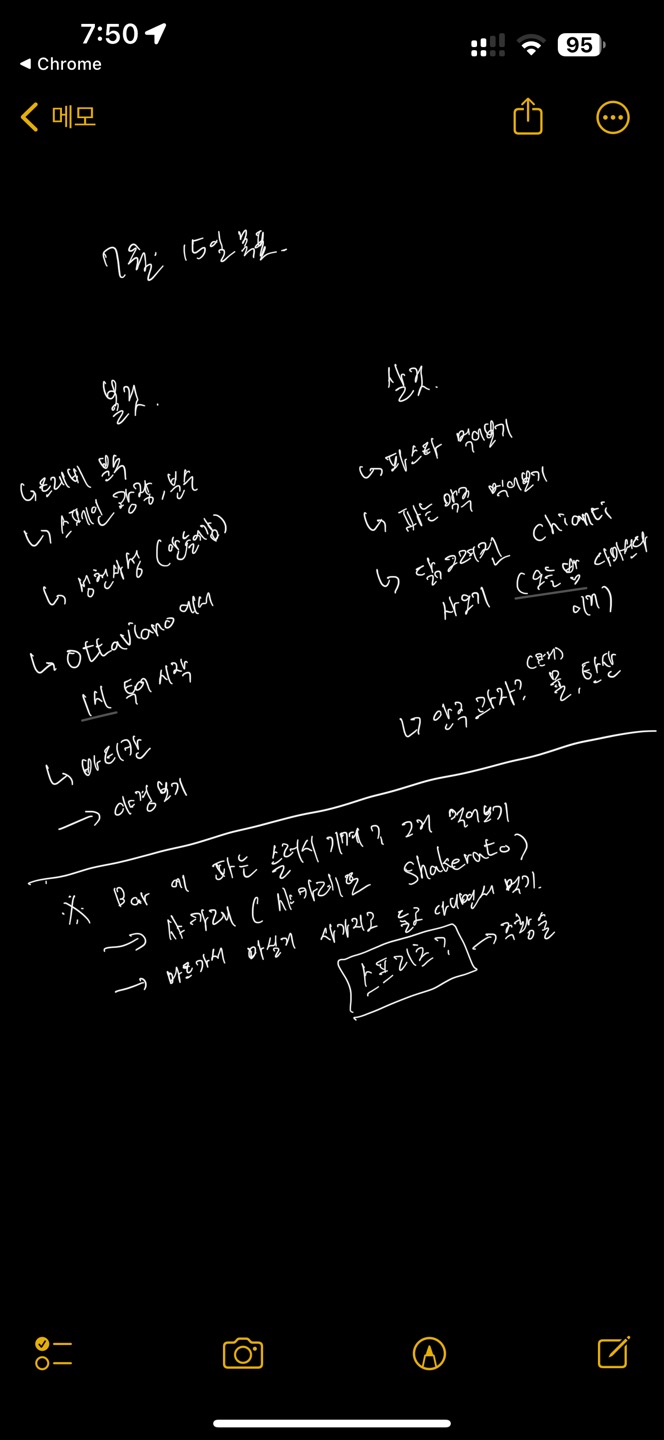 7:50
95
Chrome
메모
7월 15일 목표.
볼것.
트레비 분수
스페인 광장, 분수
성천사성 (안들어감)
Ottaviano 에서
1시 투어 시작
바티칸
→ 야경보기
살것.
파스타 먹어보기
파는 맥주 먹어보기
닭 그려진 Chianti
사오기 (오늘 밤 다마신다
이거)
안주 과자? 물, 탄산
※ Bar 에 파는 슬러시 기계? 그거 먹어보기
→ 샤카레 (샤카레또 Shakerato)
→ 마트가서 마실거 사가지고 들고 다니면서 먹기.
스프리츠? → 주황술